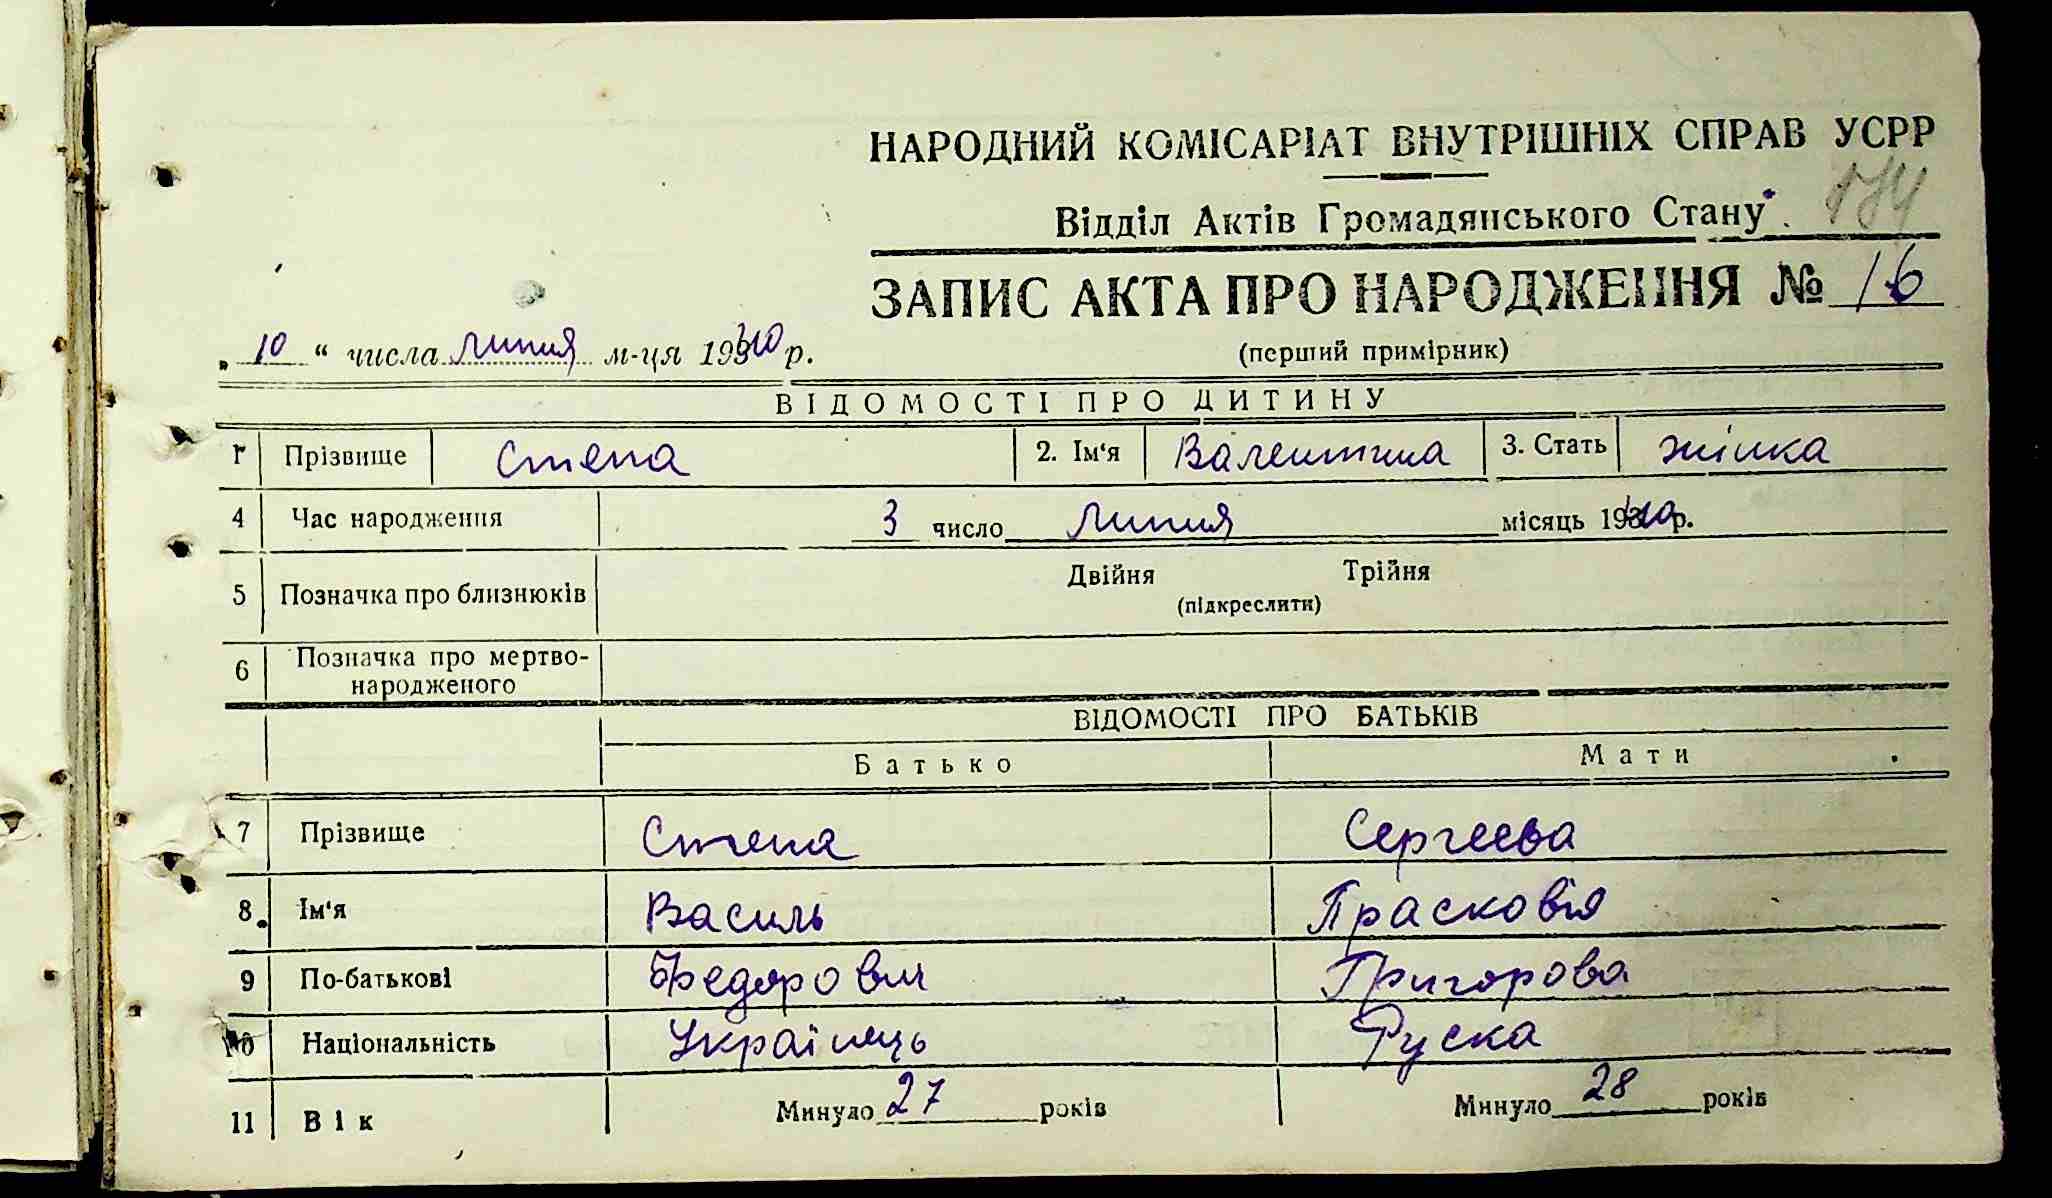 НАРОДНИЙ КОМІСАРІАТ ВНУТРІШНІХ СПРАВ УСРР
Відділ Актів Громадянського Стану
ЗАПИС АКТА ПРО НАРОДЖЕННЯ № 16
„ 10 “ числа липня м-ця 1940 р.
(перший примірник)
ВІДОМОСТІ ПРО ДИТИНУ
1 Прізвище Степа 2. Ім‘я Валентина 3. Стать жінка
4 Час народження 3 число липня місяць 1940 р.
5 Позначка про близнюків Двійня Трійня
(підкреслити)
6 Позначка про мертво-
народженого
ВІДОМОСТІ ПРО БАТЬКІВ
Батько Мати
7 Прізвище Степа Сергеєва
8. Ім‘я Василь Прасковія
9 По-батькові Федорович Григорова
10 Національність Українець Руска
11 Вік Минуло 27 років Минуло 28 років